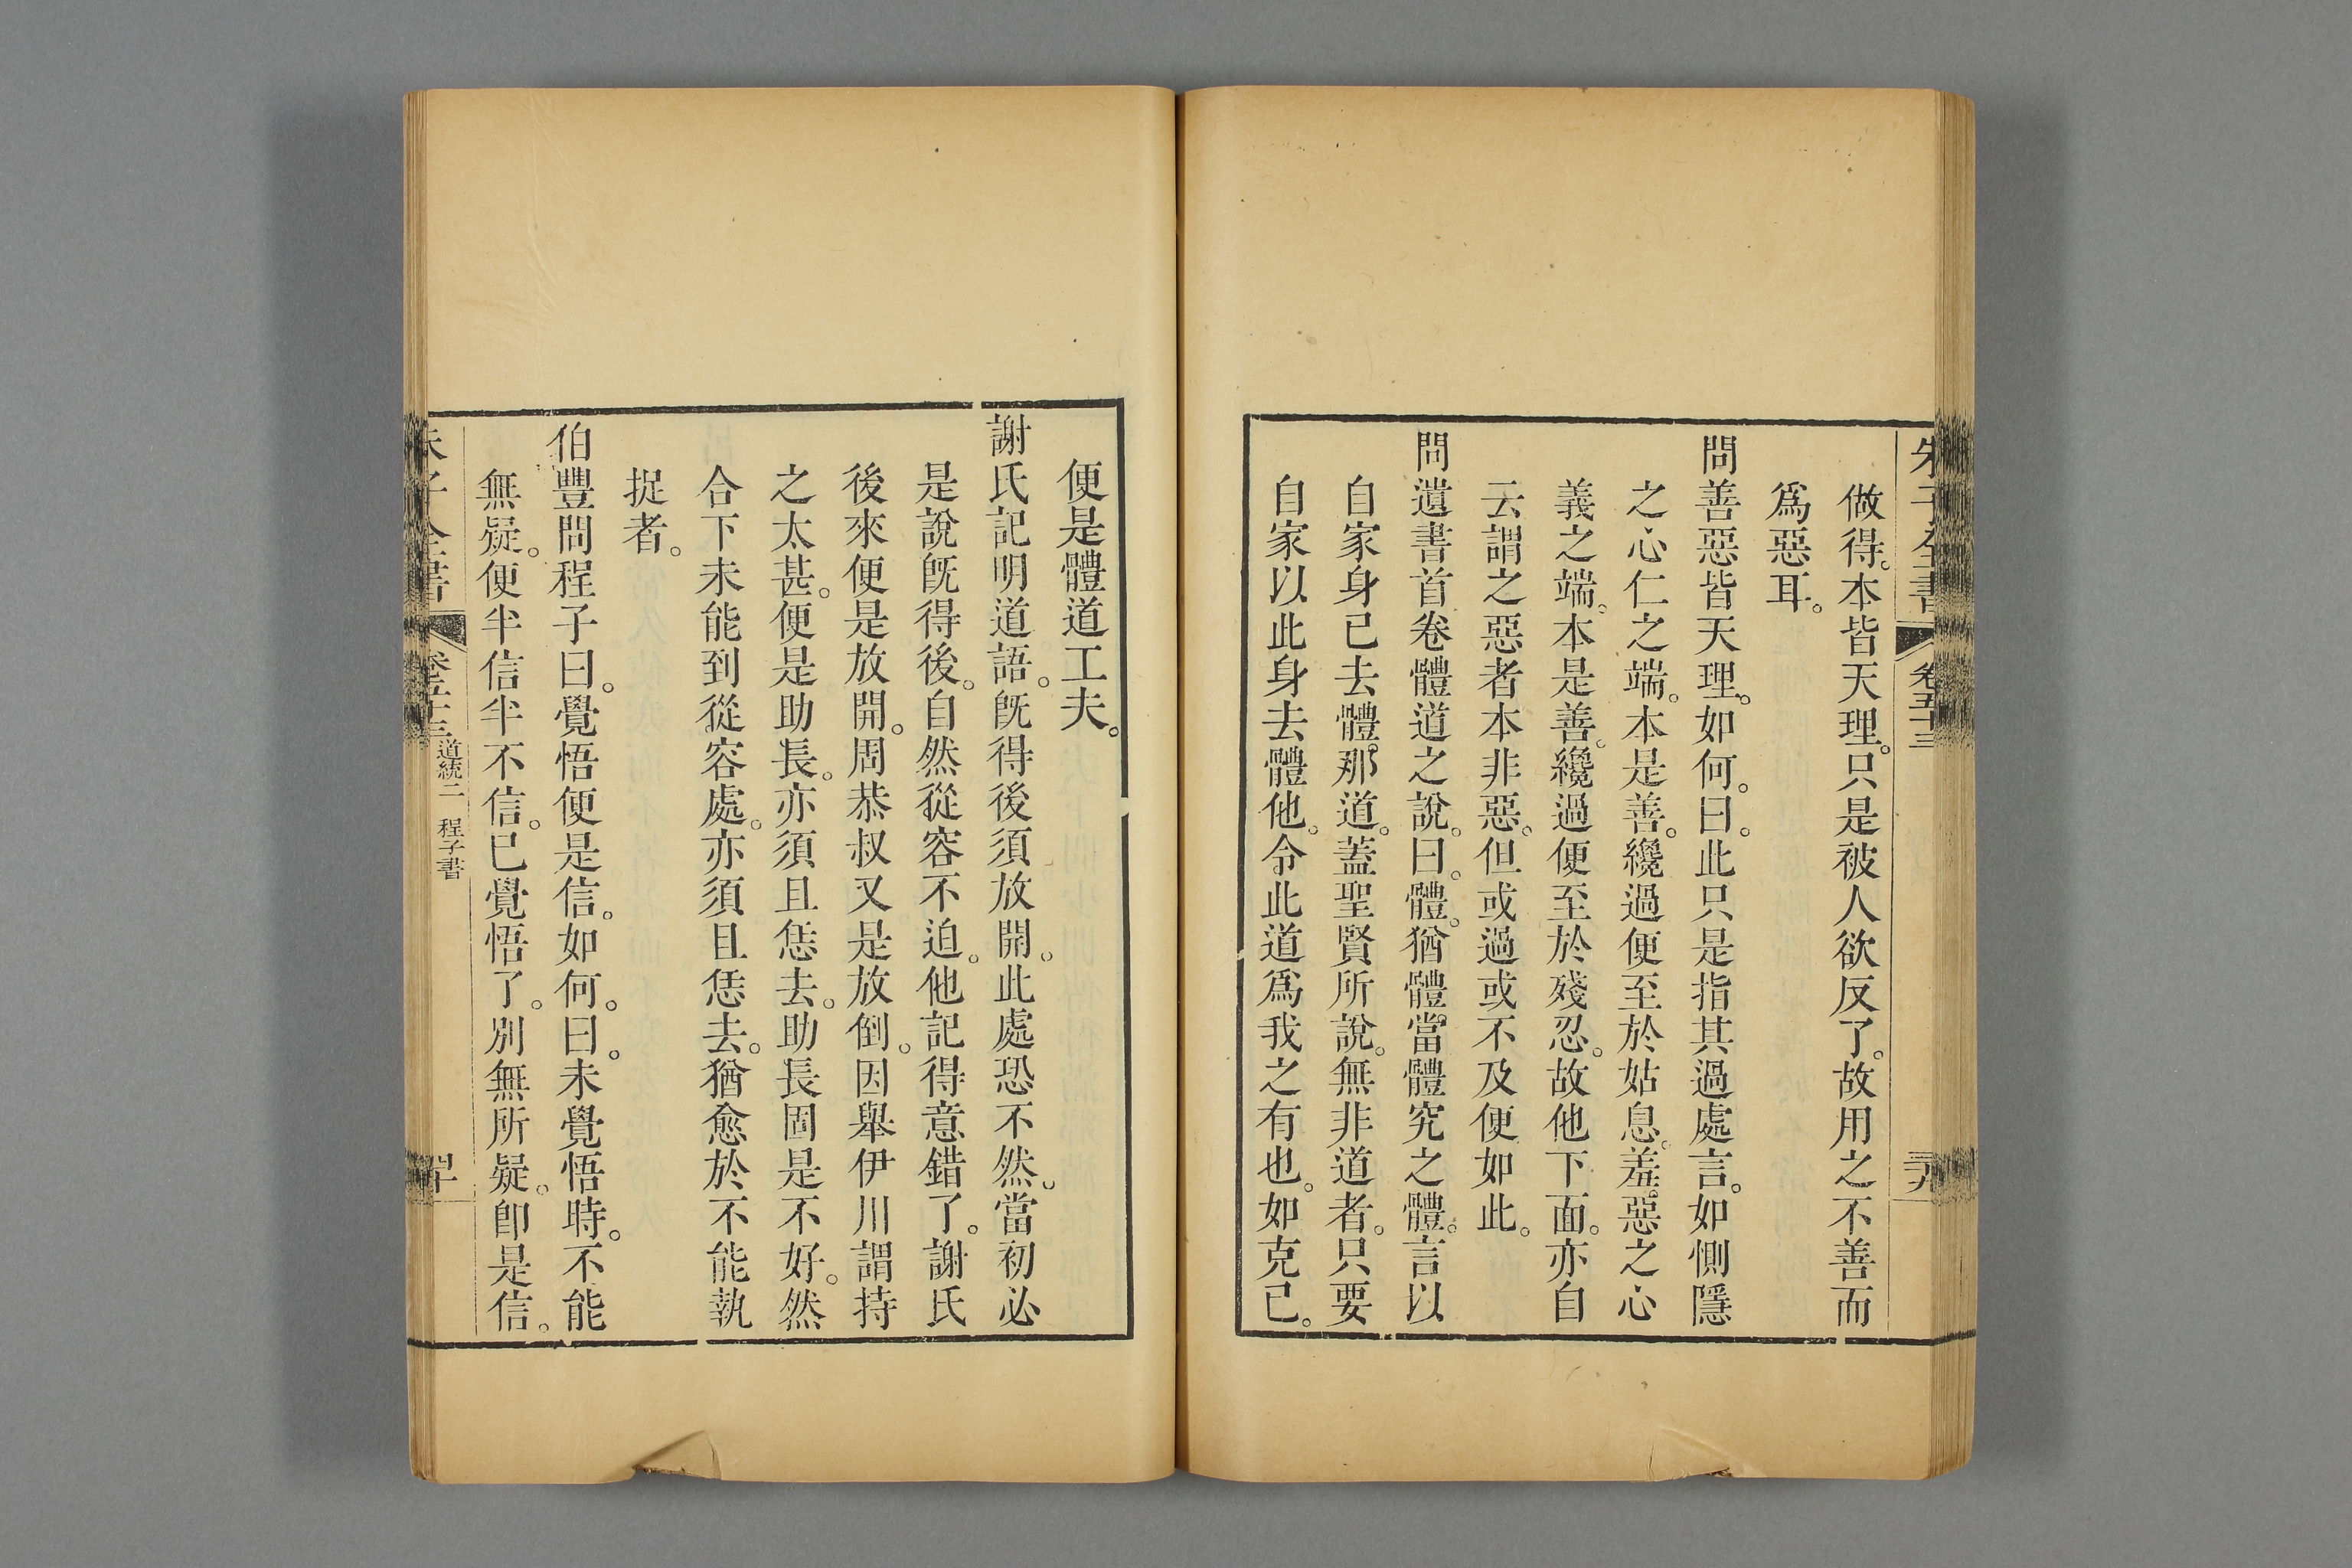 朱子全書
卷五十三
做得。本皆天理。只是被人欲反了。故用之不善而
爲惡耳。
問善惡皆天理。如何。曰。此只是指其過處言。如惻隱
之心仁之端。本是善。纔過便至於姑息。羞惡之心
義之端。本是善。纔過便至於殘忍。故他下面。亦自
云謂之惡者本非惡。但或過或不及便如此。
問遺書首卷體道之說。曰。體。猶體當體究之體。言以
自家身已去體那道。蓋聖賢所說。無非道者。只要
自家以此身去體他。令此道爲我之有也。如克己。
便是體道工夫。
謝氏記明道語。旣得後須放開。此處恐不然。當初必
是說旣得後。自然從容不迫。他記得意錯了。謝氏
後來便是放開。周恭叔又是放倒。因舉伊川謂持
之太甚。便是助長。亦須且恁去。助長固是不好。然
合下未能到從容處。亦須且恁去。猶愈於不能執
捉者。
伯豐問程子曰。覺悟便是信。如何。曰。未覺悟時。不能
無疑。便半信半不信。已覺悟了。別無所疑。卽是信。
道統二 程子書